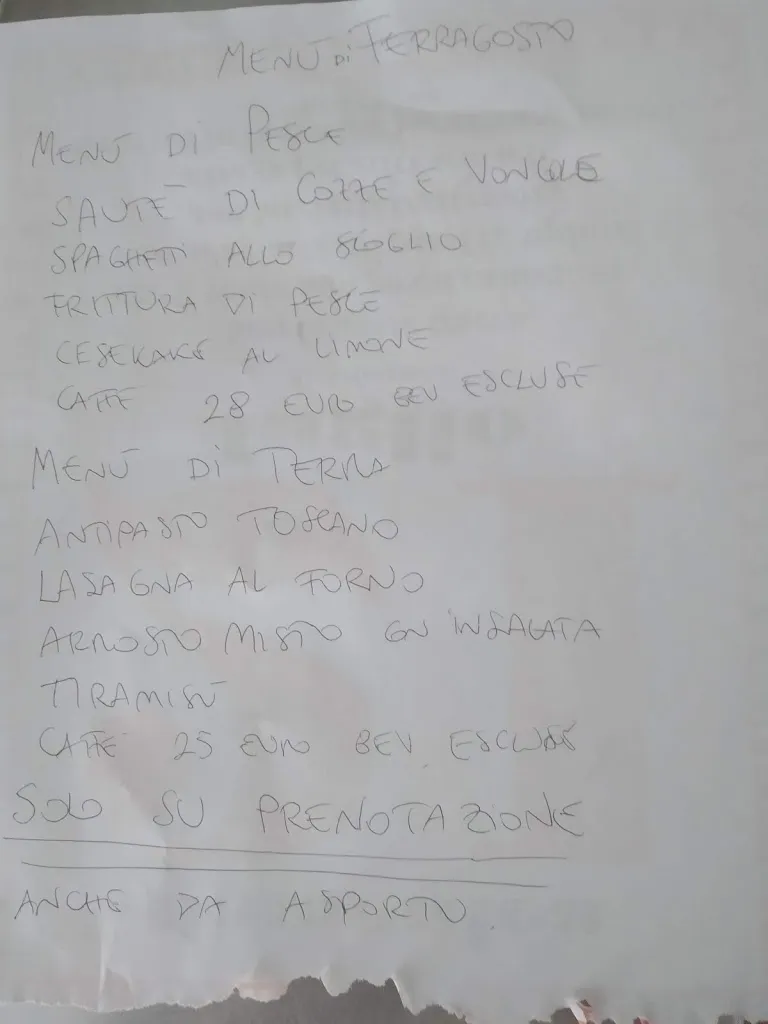 MENÙ DI FERRAGOSTO
MENÙ DI PESCE
SAUTÈ DI COZZE E VONGOLE
SPAGHETTI ALLO SCOGLIO
FRITTURA DI PESCE
CESEKAKE AL LIMONE
CAFFE 28 EURO BEV ESCLUSE
MENÙ DI TERRA
ANTIPASTO TOSCANO
LASAGNA AL FORNO
ARROSTO MISTO CON INSALATA
TIRAMISÙ
CAFFE 25 EURO BEV. ESCLUSE
SOLO SU PRENOTAZIONE
ANCHE DA ASPORTO.